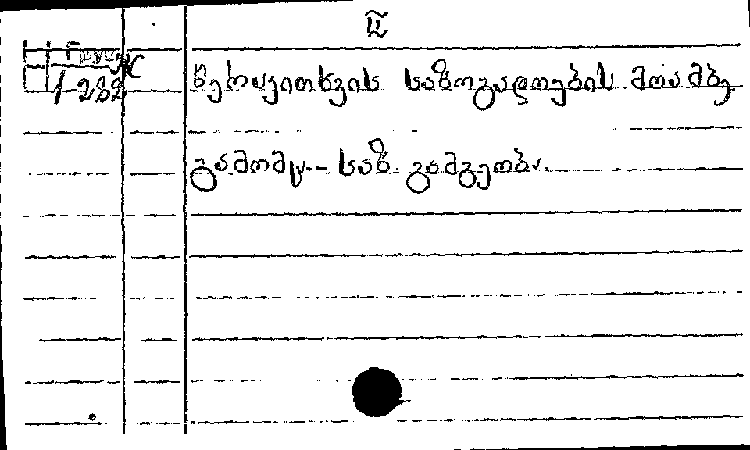 II
1-232
წერაკითხვის საზოგადოების მოამბე
გამომც.- საზ. გამგეობა.